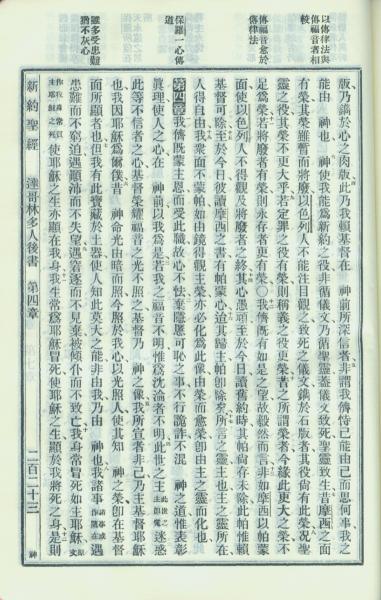 以傳律法與
傳福音者相
較
傳福音愈於
傳律法
保羅一心傳
道
雖多受患難
猶不灰心
版乃鐫於心之肉版此乃我賴基督在　神前所深信者非謂我儕恃己能由己而思何事我之
能由　神也　神使我能為新約之役非循儀文乃循聖靈蓋儀文致死聖靈致生昔摩西之面
有榮其榮雖暫而將廢以色列人不能注目觀之致死之儀文鐫於石版者其役尚有此榮况聖
靈之役其榮不更大乎若定罪之役有榮則稱義之役更榮昔之所謂榮者今緣此更大之榮不
足為榮若將廢者有榮則永存者更有榮〇我儕既有如是之望故毅然而言非如摩西以帕蒙
面使以色列人不得觀及將廢者之終其心頑梗至於今日讀舊約時其帕尚存未除此帕惟賴
基督可除至於今日彼讀摩西之書有帕蒙心迨其歸主帕即除矣所言之靈主也主之靈所在
人得自由我眾面不蒙帕如由鏡得觀主榮亦必化為此像由榮而愈榮即由主之靈而化也
第四章我儕既蒙主恩而受此職故心不怯棄隱慝可恥之事不行詭詐不混　神之道惟表彰
真理使人之心在　神前以我為是若我之福音不明惟為沈淪者不明此世之主迷惑
此等不信者之心基督榮耀福音之光不照之基督乃　神之像我所宣者非己乃主基督耶穌
也我因耶穌為爾僕昔　神命光由暗而照今照於我心以光照人使其知　神之榮即在基督
面所顯者也但我有此寶藏於土器使人知此莫大之能非由我乃由　神也我諸事遇
患難而不窮迫遇顛沛而不失望遇窘逐而不見棄被傾仆而不致亡我身常冒死如主耶穌
使耶穌之生亦顯在我身我生常為耶穌冒死使耶穌之生顯於我將死之身是則
新約聖經　達哥林多人後書　第四章　二百二十三　神